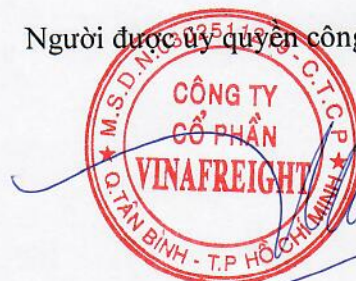 Người được ủy quyền công
M.S.D.N: - C.T.C.P
CÔNG TY
CỔ PHẦN
VINAFREIGHT
Q.TÂN BÌNH - T.P HỒ CHÍ MINH